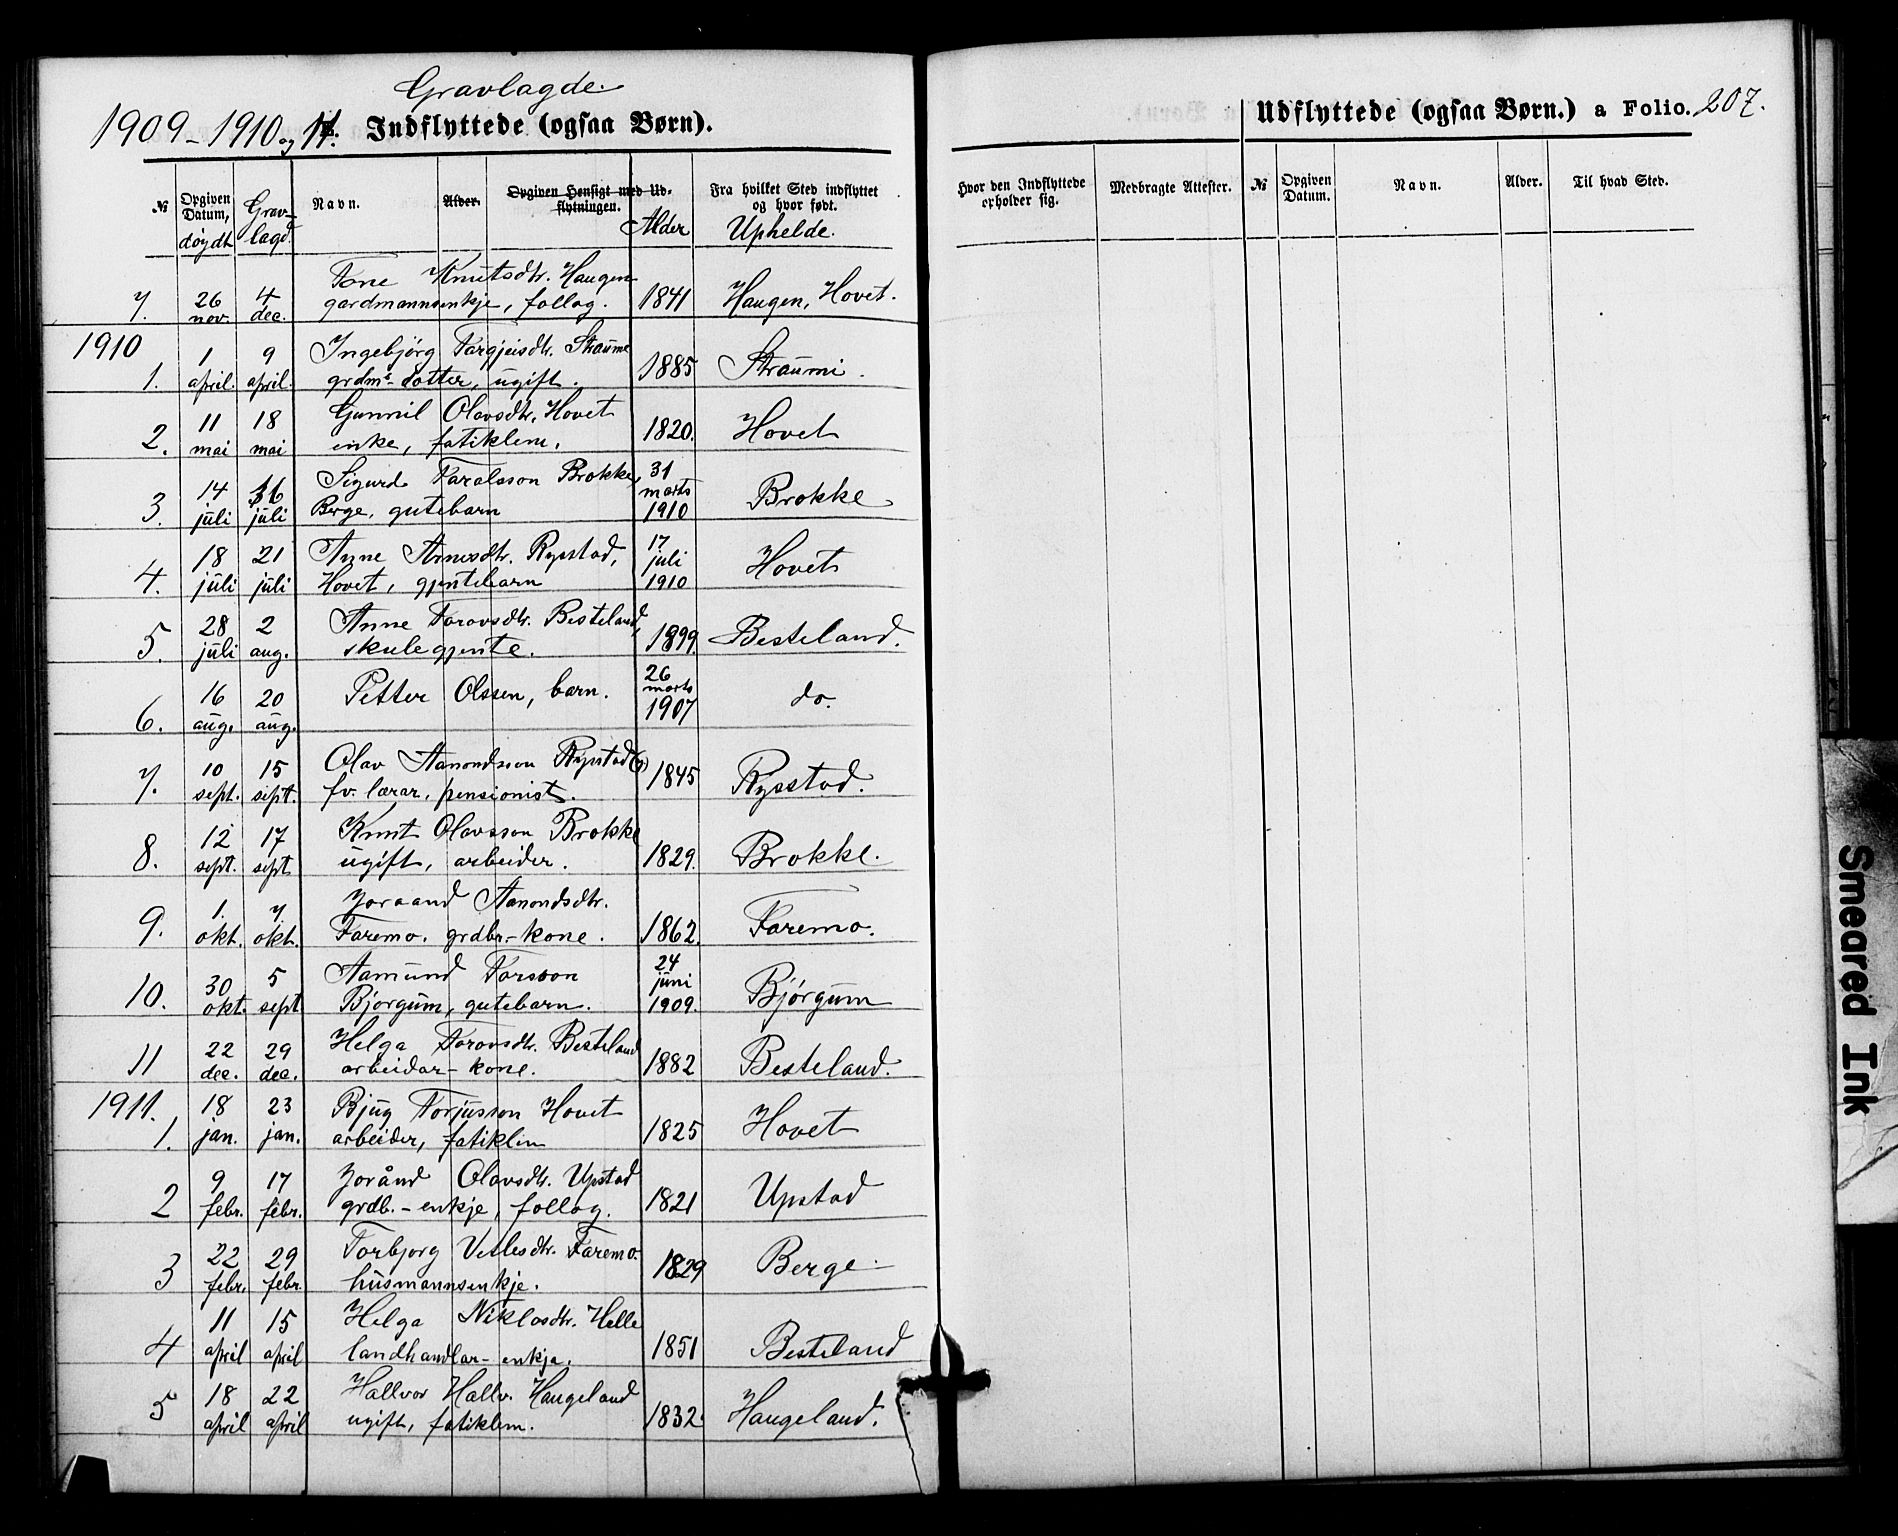 Gravlagde.
1909-1910 og 11. Indflyttede (ogsaa Børn).
№ Opgiven Datum, døydt Gravlagd. Navn. Alder. Opgiven Hensigt med Udflytningen. Alder Fra hvilket Sted indflyttet og hvor født. Uphelde.
Tone Knutsdtr. Haugen
7. 26 nov. 4 dec. gardmannsenkje, follog. 1841 Haugen, Hovet.
1910
1. 1 april. 9 april. Ingebjörg Targjeisdtr. Straume
grdms-dotter, ugift. 1885 Straumi.
2. 11 mai 18 mai Gunnil Olavsdtr. Hovet
enke, fatiklem. 1820. Hovet
3. 14 juli 16 juli Sigurd Taralsson Brokke,
Berge, gutebarn 31 marts 1910 Brokke
4. 18 juli 21 juli Anne Arnesdtr. Rysstad,
Hovet, gjentebarn 17 juli 1910 Hovet
5. 28 juli 2 aug. Anne Torovsdtr. Besteland,
skulegjente. 1899. Besteland.
6. 16 aug. 20 aug. Petter Olssen, barn. 26 marts 1907 do.
7. 10 sept. 15 sept. Olav Aanondsson Rysstad
fv. lærar, pensionist. 1845 Rysstad.
8. 12 sept. 17 sept Knut Olavsson Brokke
ugift, arbeider. 1829. Brokke.
9. 1. okt. 7. okt. Joraand Aanondsdtr.
Faremo. grdbr-kone. 1862. Faremo.
10. 30 okt. 5 sept Aamund Torsson
Bjorgum, gutebarn. 24 juni 1909. Bjørgum
11 22 dec. 29 dec. Helga Torovsdtr. Besteland
arbeidar-kone. 1882 Besteland.
1911.
1. 18 jan. 23 jan. Bjug Torjusson Hovet
arbeider, fatiklem 1825 Hovet
2 9 febr. 17 febr. Joránd Olavsdtr. Upstad
grdb.-enkje, follog. 1821 Upstad
3 22 febr. 29 febr. Torbjorg Vetlesdtr. Faremo.
husmannsenkje. 1829 Berge
4 11 april 15 april Helga Niklosdtr. Helle
landhandlar-enkja. 1851 Besteland
5 18 april 22 april Hallvor Hallv. Haugeland
ugift, fatiklem. 1832. Haugeland.
Udflyttede (ogsaa Børn.) a Folio. 207.
Hvor den Indflyttede opholder sig. Medbragte Attester. № Opgiven Datum. Navn. Alder. Til hvad Sted.
Smeared Ink